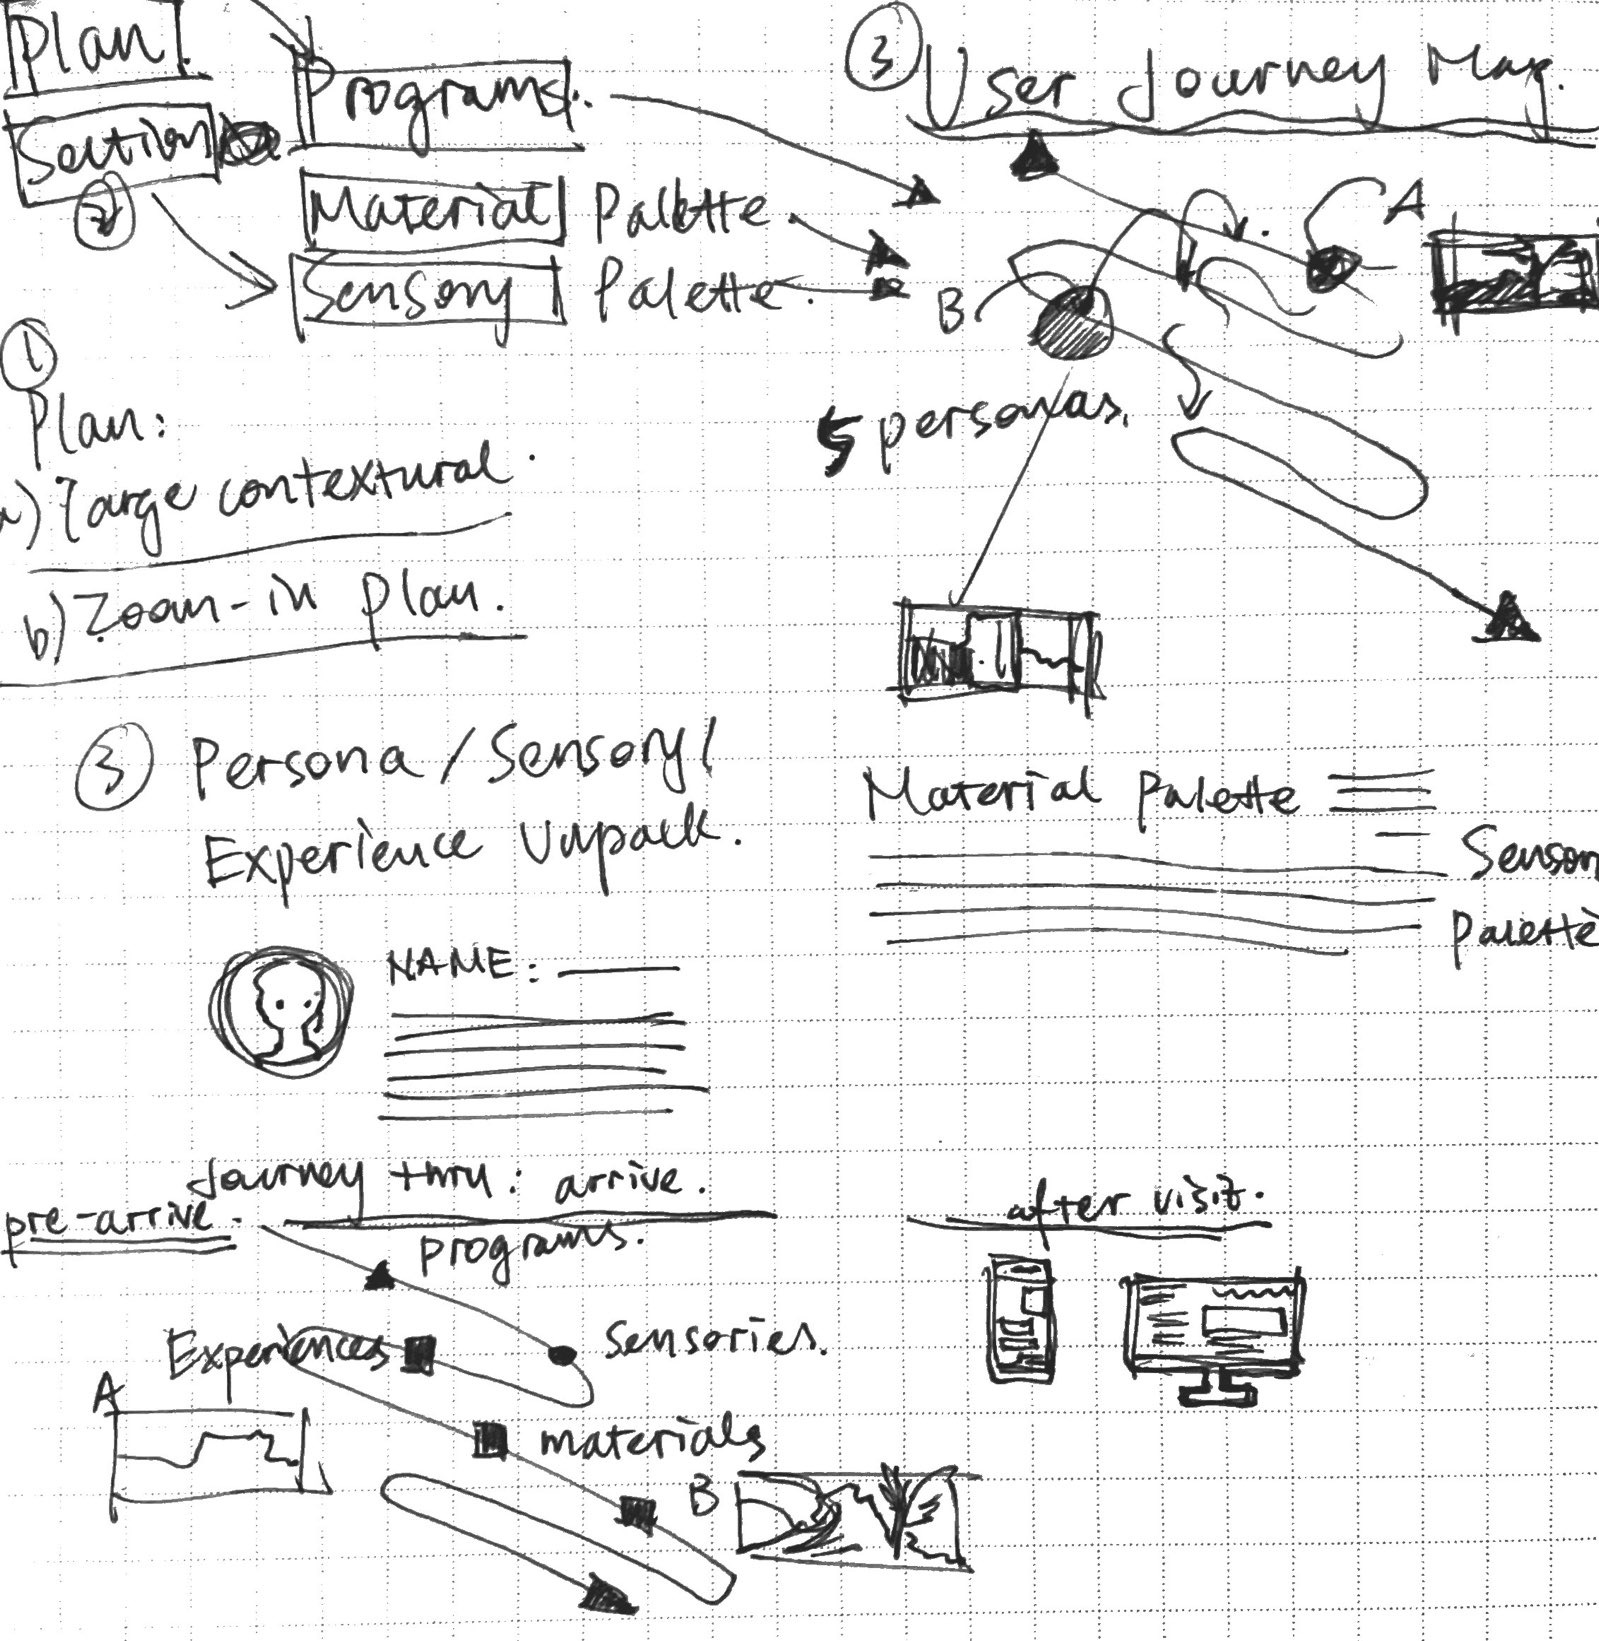 Plan.
Section
2
Programs.
Material Palette.
Sensory Palette.
3 User Journey Map.
A
B
5 personas.
1
Plan:
a) Large contextural.
b) Zoom-in plan.
3 Persona / Sensory /
Experience Unpack.
Material Palette
Sensory
Palette
NAME:
Journey thru: arrive.
pre-arrive.
programs.
after visit.
Experiences
sensories.
A
materials
B